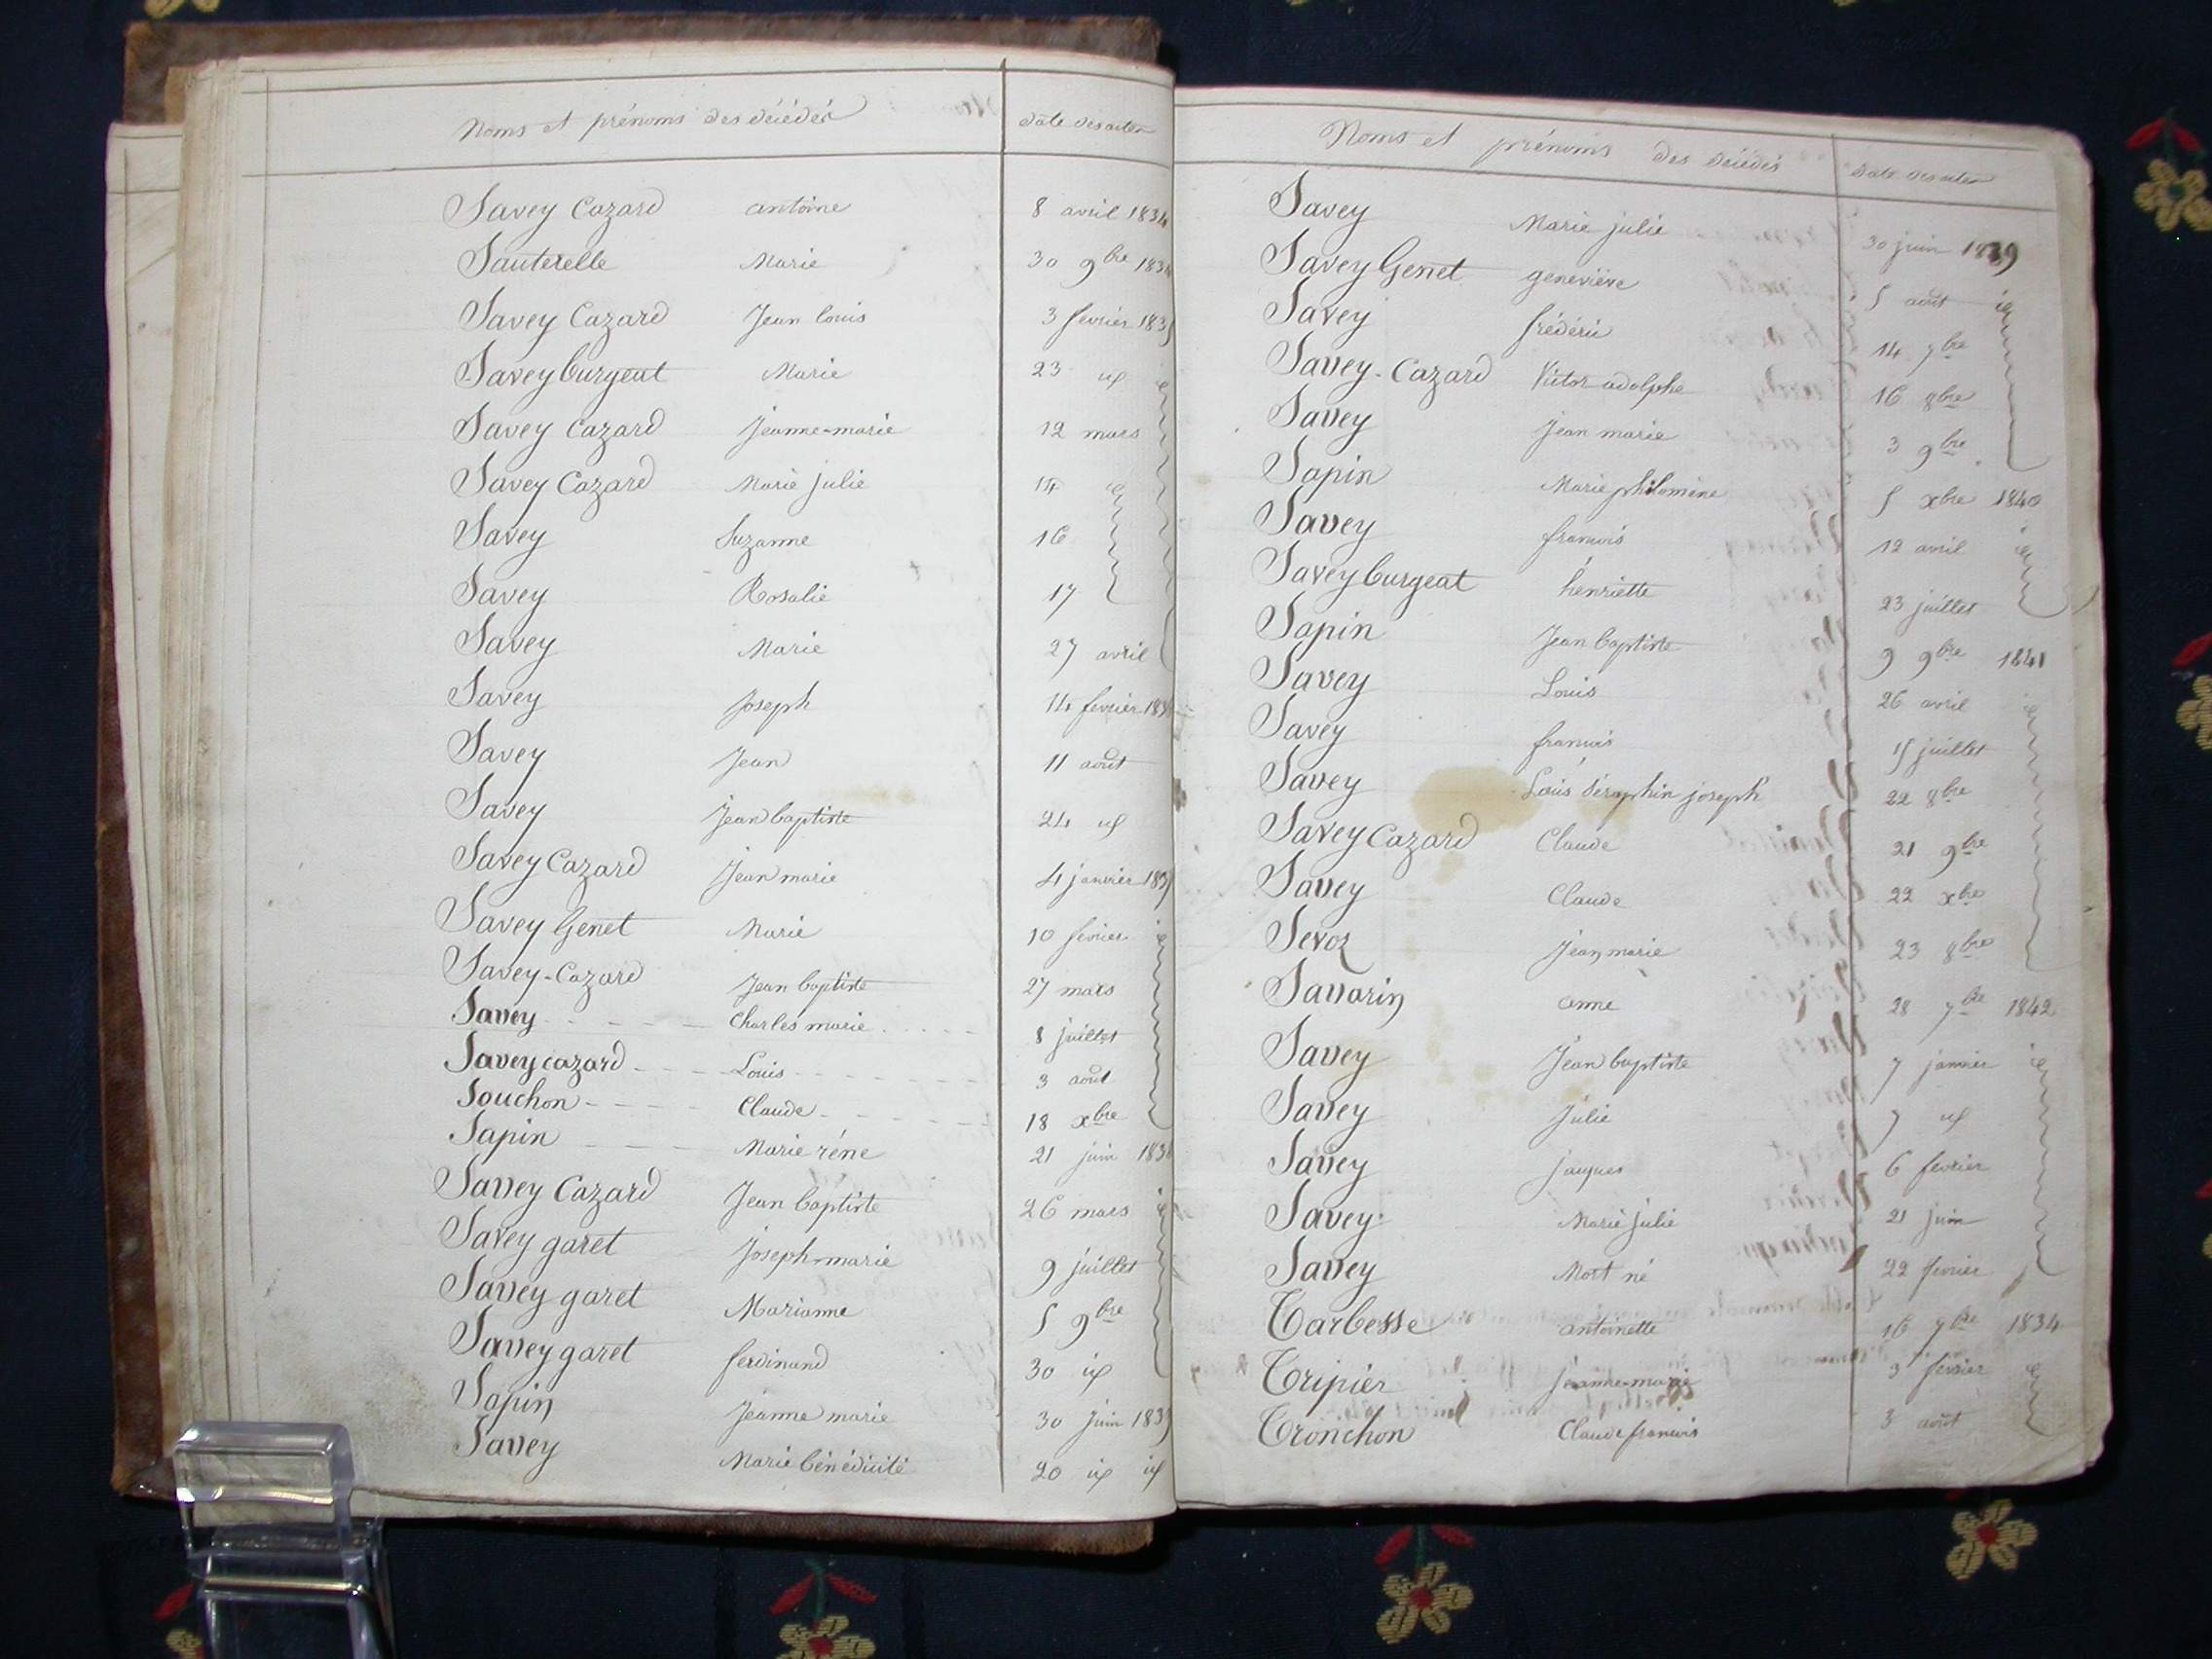 Noms et prénoms des décédés date des actes
Savey Cazard antoine 8 avril 1834
Sauterelle Marie 30 9bre 1834
Savey Cazard Jean louis 3 fevrier 1835
Savey burgeat Marie 23 id
Savey Cazard jeanne-marie 12 mars
Savey Cazard Marie julie 14
Savey Suzanne 16
Savey Rosalie 17
Savey Marie 27 avril
Savey Joseph 14 fevrier
Savey Jean 11 août
Savey jean baptiste 24 id
Savey Cazard jean marie 4 janvier
Savey Genet Marie 10 fevrier
Savey-Cazard Jean baptiste 27 mars
Savey Charles marie 8 juillet
Savey cazard Louis 3 août
Souchon Claude 18 xbre
Sapin Marie réne 21 juin
Savey Cazard Jean baptiste 26 mars
Savey garet joseph-marie 9 juillet
Savey garet Marianne 5 9bre
Savey garet ferdinand 30 id
Sapin jeanne marie 30 juin 1839
Savey Marie bénédicité 20 id id
Noms et prénoms des décédés date des actes
Savey Marie julie 30 juin 1839
Savey Genet geneviève 5 août
Savey frédéric 14 7bre
Savey-Cazard Victor adolphe 16 8bre
Savey jean marie 3 9bre
Sapin Marie philomène 5 xbre 1840
Savey francois 12 avril
Savey burgeat henriette 23 juillet
Sapin Jean baptiste 9 9bre 1841
Savey Louis 26 avril
Savey francois 15 juillet
Savey Louis séraphin joseph 22 8bre
Savey Cazard Claude 21 9bre
Savey Claude 22 xbre
Sevoz jean marie 23 8bre
Savarin anne 28 7bre 1842
Savey Jean baptiste 7 janvier
Savey Julie 7 id
Savey jacques 6 fevrier
Savey Marie julie 21 juin
Savey Mort né 22 fevrier
Tarbesse antoinette 16 7bre 1834
Tripier jeanne-marie 3 fevrier
Tronchon Claude francois 3 août